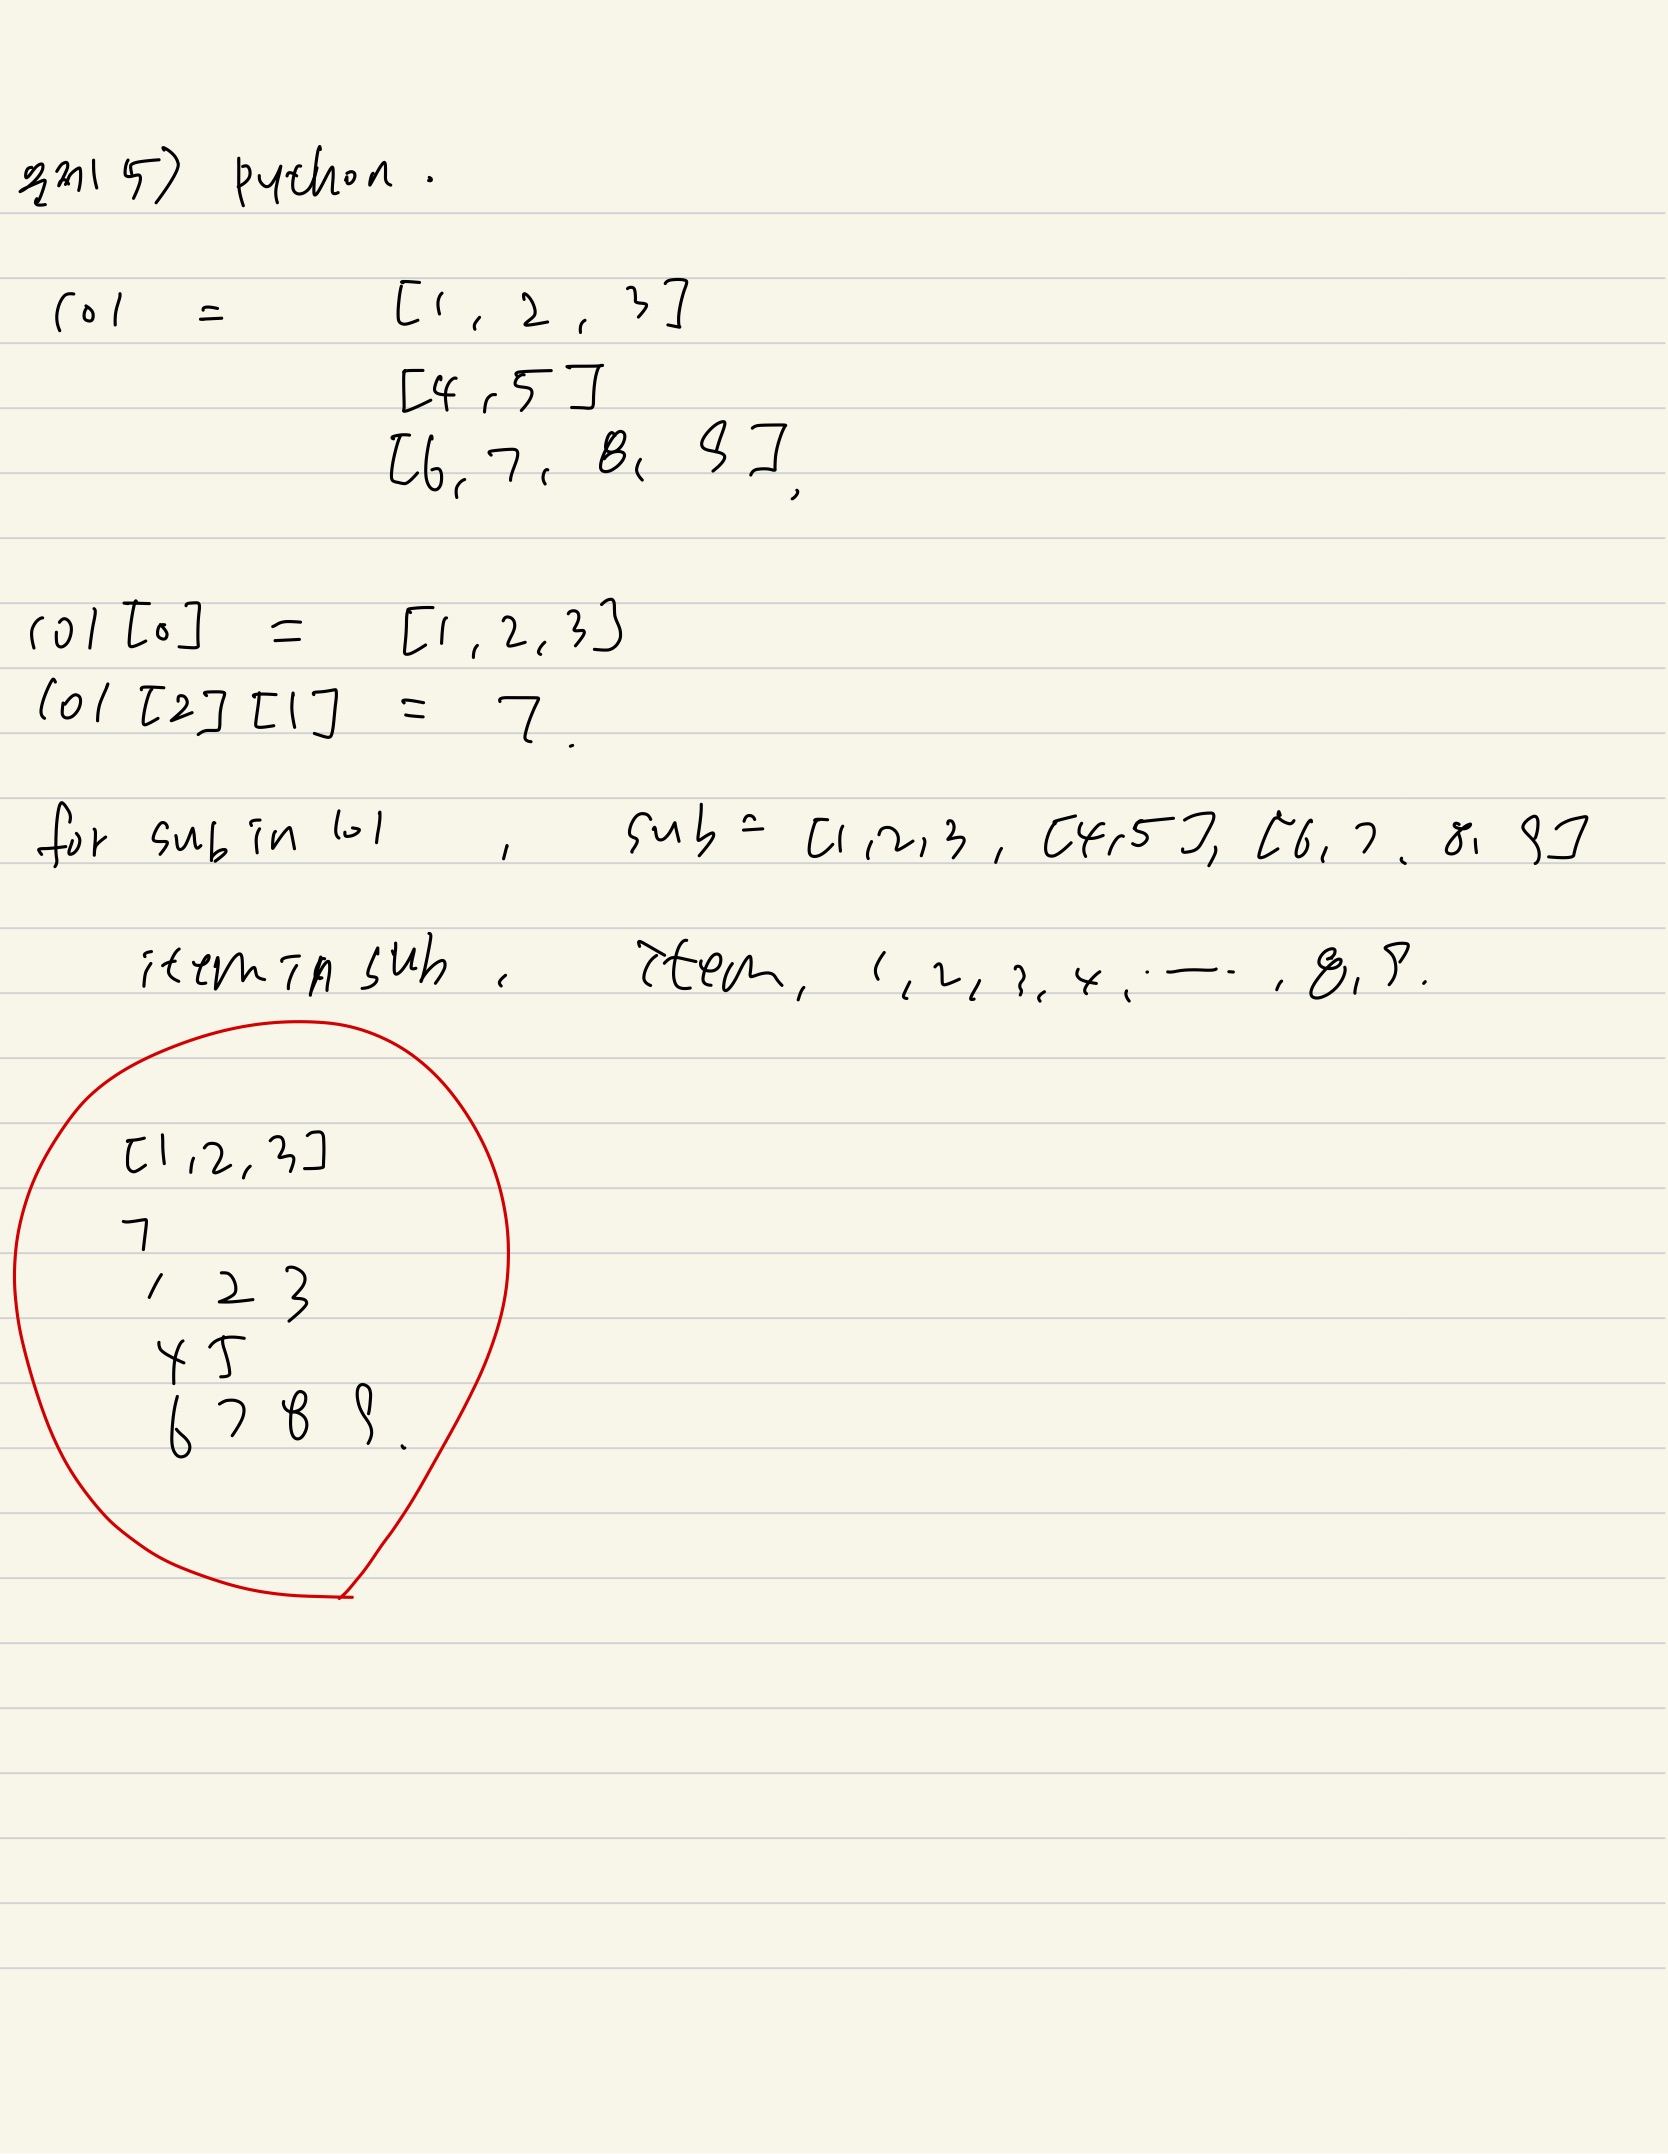 문제 5) python.
lol = [1, 2, 3]
[4, 5]
[6, 7, 8, 9],
lol [0] = [1, 2, 3]
lol [2] [1] = 7.
for sub in lol , sub = [1, 2, 3, [4, 5], [6, 7, 8, 9]
item in sub, item, 1, 2, 3, 4, ... , 8, 9.
[1, 2, 3]
7
1 2 3
4 5
6 7 8 9.